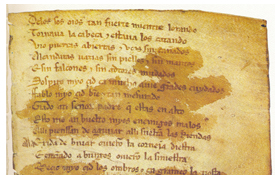 Delos sos oios tan fuerte mientre lorando
Tornaua la cabeça & estaua los catando
Vio puertas abiertas & vços sin cañados
Alcandaras uazias sin pielles & sin mantos
E sin falcones & sin adtores mudados
Sospiro myo çid ca mucho auie grandes cuydados
Fablo myo çid bien & tan mesurado
Grado ati señor padre que estas en alto
Esto me an buelto myos enemigos malos
Alli pienssan de aguijar alli sueltan las Riendas
Ala exida de biuar ouieron la corneia diestra
E entrando a burgos ouieron la siniestra
Meçio myo çid los ombros & engrameo la tiesta